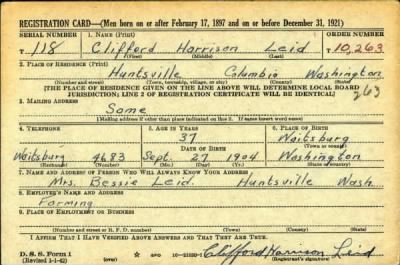 REGISTRATION CARD—(Men born on or after February 17, 1897 and on or before December 31, 1921)
SERIAL NUMBER 1. NAME (Print) ORDER NUMBER
T 118 Clifford Harrison Leid T 10,263
(First) (Middle) (Last)
2. PLACE OF RESIDENCE (Print)
Huntsville Columbia Washington
(Number and street) (Town, township, village, or city) (County) (State)
[THE PLACE OF RESIDENCE GIVEN ON THE LINE ABOVE WILL DETERMINE LOCAL BOARD
JURISDICTION; LINE 2 OF REGISTRATION CERTIFICATE WILL BE IDENTICAL]
263
3. MAILING ADDRESS
Same
[Mailing address if other than place indicated on line 2. If same insert word same]
4. TELEPHONE 5. AGE IN YEARS 6. PLACE OF BIRTH
37 Waitsburg
DATE OF BIRTH (Town or county)
Waitsburg 4683 Sept. 27 1904 Washington
(Exchange) (Number) (Mo.) (Day) (Yr.) (State or country)
7. NAME AND ADDRESS OF PERSON WHO WILL ALWAYS KNOW YOUR ADDRESS
Mrs. Bessie Leid. Huntsville Wash
8. EMPLOYER'S NAME AND ADDRESS
Farming
9. PLACE OF EMPLOYMENT OR BUSINESS
(Number and street or R. F. D. number) (Town) (County) (State)
I AFFIRM THAT I HAVE VERIFIED ABOVE ANSWERS AND THAT THEY ARE TRUE.
D. S. S. Form 1 Clifford Harrison Leid
(Revised 1-1-42) (over) GPO (Registrant's signature)